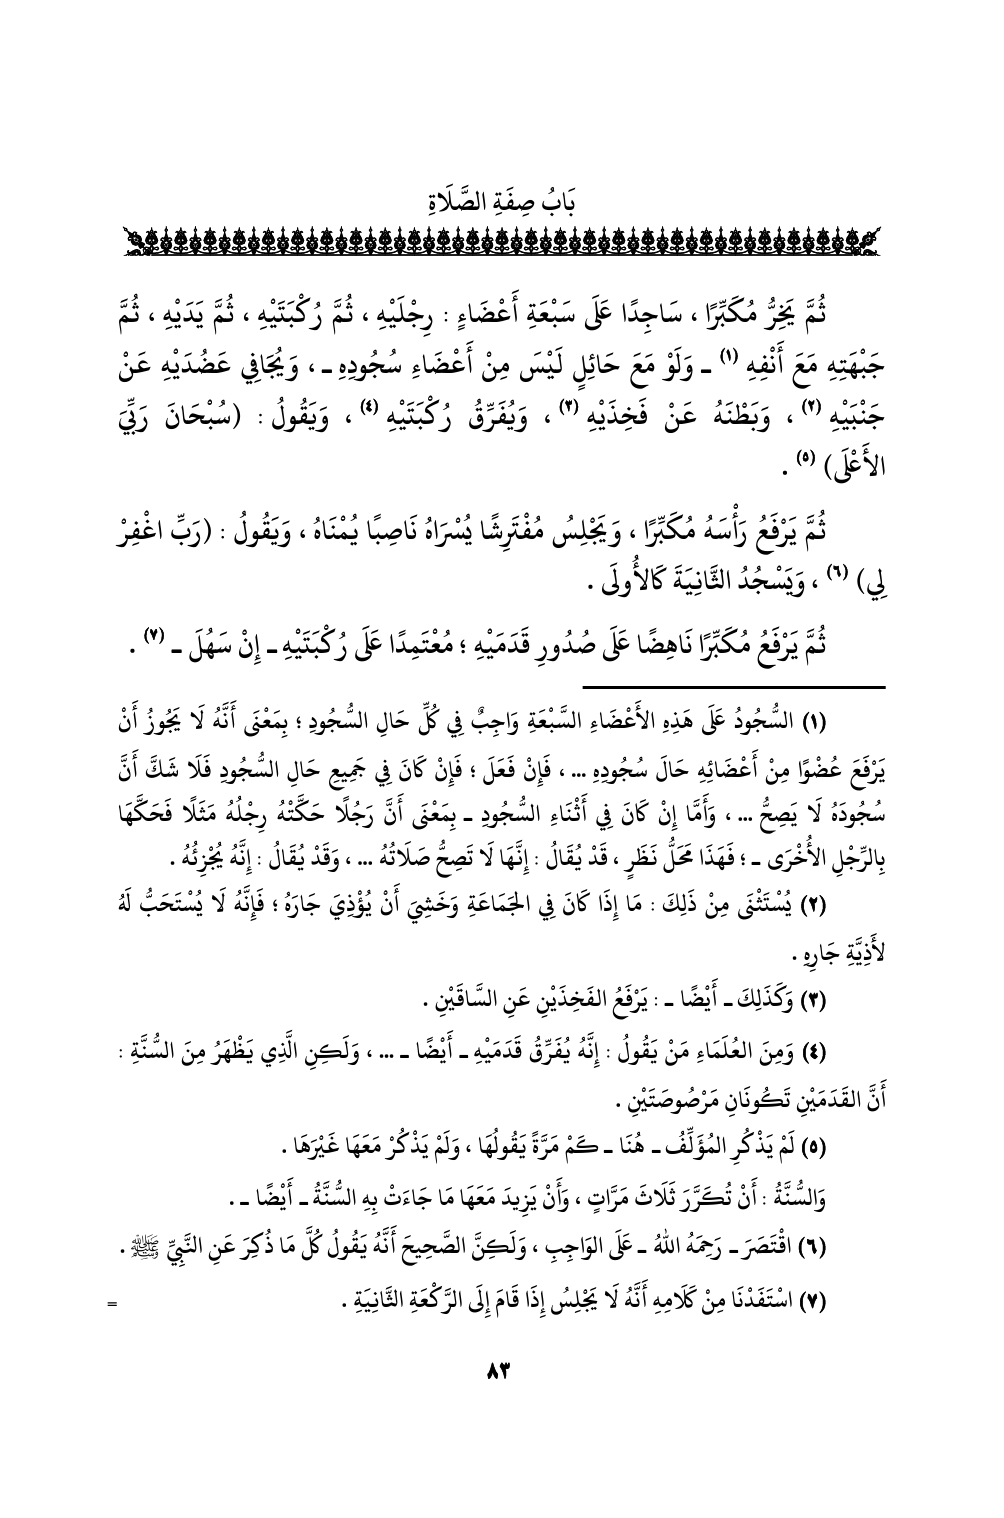 بَابُ صِفَةِ الصَّلَاةِ
ثُمَّ يَخِرُّ مُكَبِّرًا ، سَاجِدًا عَلَى سَبْعَةِ أَعْضَاءٍ : رِجْلَيْهِ ، ثُمَّ رُكْبَتَيْهِ ، ثُمَّ يَدَيْهِ ، ثُمَّ
جَبْهَتِهِ مَعَ أَنْفِهِ (١) ـ وَلَوْ مَعَ حَائِلٍ لَيْسَ مِنْ أَعْضَاءِ سُجُودِهِ ـ ، وَيُجَافِي عَضُدَيْهِ عَنْ
جَنْبَيْهِ (٢) ، وَبَطْنَهُ عَنْ فَخِذَيْهِ (٣) ، وَيُفَرِّقُ رُكْبَتَيْهِ (٤) ، وَيَقُولُ : (سُبْحَانَ رَبِّيَ
الأَعْلَى) (٥) .
ثُمَّ يَرْفَعُ رَأْسَهُ مُكَبِّرًا ، وَيَجْلِسُ مُفْتَرِشًا يُسْرَاهُ نَاصِبًا يُمْنَاهُ ، وَيَقُولُ : (رَبِّ اغْفِرْ
لِي) (٦) ، وَيَسْجُدُ الثَّانِيَةَ كَالأُولَى .
ثُمَّ يَرْفَعُ مُكَبِّرًا نَاهِضًا عَلَى صُدُورِ قَدَمَيْهِ ؛ مُعْتَمِدًا عَلَى رُكْبَتَيْهِ ـ إِنْ سَهُلَ ـ (٧) .
(١) السُّجُودُ عَلَى هَذِهِ الأَعْضَاءِ السَّبْعَةِ وَاجِبٌ فِي كُلِّ حَالِ السُّجُودِ ؛ بِمَعْنَى أَنَّهُ لَا يَجُوزُ أَنْ
يَرْفَعَ عُضْوًا مِنْ أَعْضَائِهِ حَالَ سُجُودِهِ ... ، فَإِنْ فَعَلَ ؛ فَإِنْ كَانَ فِي جَمِيعِ حَالِ السُّجُودِ فَلَا شَكَّ أَنَّ
سُجُودَهُ لَا يَصِحُّ ... ، وَأَمَّا إِنْ كَانَ فِي أَثْنَاءِ السُّجُودِ ـ بِمَعْنَى أَنَّ رَجُلًا حَكَّتْهُ رِجْلُهُ مَثَلًا فَحَكَّهَا
بِالرِّجْلِ الأُخْرَى ـ ؛ فَهَذَا مَحَلُّ نَظَرٍ ، قَدْ يُقَالُ : إِنَّهَا لَا تَصِحُّ صَلَاتُهُ ... ، وَقَدْ يُقَالُ : إِنَّهُ يُجْزِئُهُ .
(٢) يُسْتَثْنَى مِنْ ذَلِكَ : مَا إِذَا كَانَ فِي الجَمَاعَةِ وَخَشِيَ أَنْ يُؤْذِيَ جَارَهُ ؛ فَإِنَّهُ لَا يُسْتَحَبُّ لَهُ
لأَذِيَّةِ جَارِهِ .
(٣) وَكَذَلِكَ ـ أَيْضًا ـ : يَرْفَعُ الفَخِذَيْنِ عَنِ السَّاقَيْنِ .
(٤) وَمِنَ العُلَمَاءِ مَنْ يَقُولُ : إِنَّهُ يُفَرِّقُ قَدَمَيْهِ ـ أَيْضًا ـ ... ، وَلَكِنِ الَّذِي يَظْهَرُ مِنَ السُّنَّةِ :
أَنَّ القَدَمَيْنِ تَكُونَانِ مَرْصُوصَتَيْنِ .
(٥) لَمْ يَذْكُرِ المُؤَلِّفُ ـ هُنَا ـ كَمْ مَرَّةً يَقُولُهَا ، وَلَمْ يَذْكُرْ مَعَهَا غَيْرَهَا .
وَالسُّنَّةُ : أَنْ تُكَرَّرَ ثَلَاثَ مَرَّاتٍ ، وَأَنْ يَزِيدَ مَعَهَا مَا جَاءَتْ بِهِ السُّنَّةُ ـ أَيْضًا ـ .
(٦) اقْتَصَرَ ـ رَحِمَهُ اللهُ ـ عَلَى الوَاجِبِ ، وَلَكِنَّ الصَّحِيحَ أَنَّهُ يَقُولُ كُلَّ مَا ذُكِرَ عَنِ النَّبِيِّ ﷺ .
(٧) اسْتَفَدْنَا مِنْ كَلَامِهِ أَنَّهُ لَا يَجْلِسُ إِذَا قَامَ إِلَى الرَّكْعَةِ الثَّانِيَةِ . =
٨٣